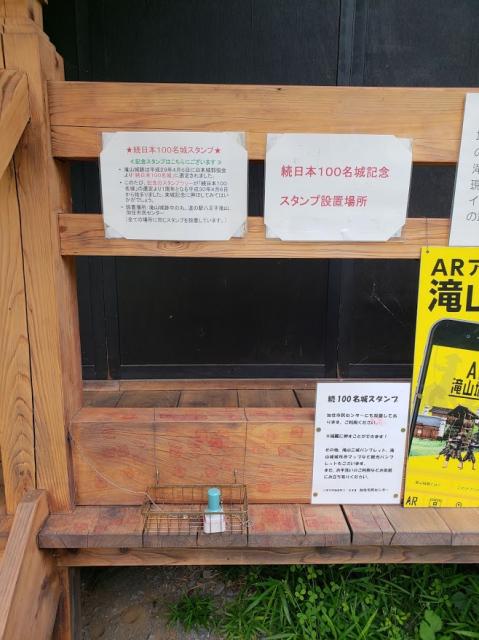 ★続日本100名城スタンプ★
≪記念スタンプはこちらにございます≫
• 滝山城跡は平成29年4月6日に日本城郭協会
より「続日本100名城」に選定されました。
• このたび、記念のスタンプラリーが「続日本100
名城」の選定より1周年となる平成30年4月6日
から始まりました。来城記念に押してみてはい
かがでしょう。
• 設置場所:滝山城跡中の丸、道の駅八王子滝山、
加住市民センター
(全ての場所に同じスタンプを設置しています。)
続日本100名城記念
スタンプ設置場所
続100名城スタンプ
加住市民センターにも設置してお
ります。ご利用ください。
その他、滝山三城パンフレット、滝
山城城攻めマップなど観光パンフ
レットもございます。
また、お手洗いのご利用などお気軽
にお立ち寄りください。
加住市民センター
ARア
滝山
A
滝山城